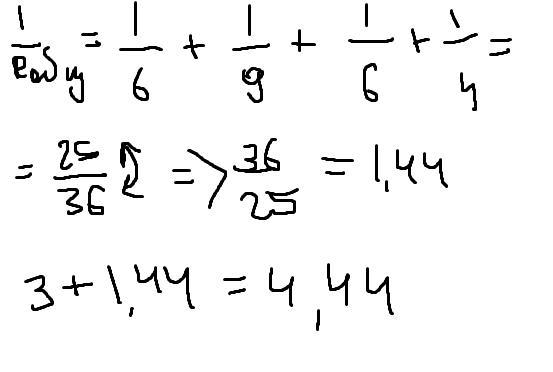 1/Rобщ = 1/6 + 1/9 + 1/6 + 1/4 =
= 25/36 ↕ => 36/25 = 1,44
3 + 1,44 = 4,44